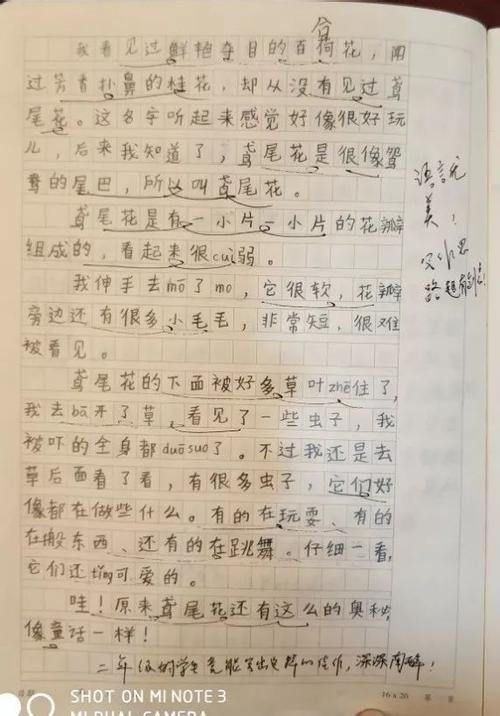 合
我看见过鲜艳夺目的百荷花，闻
过芳香扑鼻的桂花，却从没有见过鸢
尾花。这名字听起来感觉好像很好玩
儿，后来我知道了，鸢尾花是很像鸳
鸯的尾巴，所以叫鸢尾花。
鸢尾花是有一小片一小片的花瓣
组成的，看起来很cuì弱。
我伸手去mō了mo，它很软，花瓣
旁边还有很多小毛毛，非常短，很难
被看见。
鸢尾花的下面被好多草叶zhē住了，
我去bā开了草，看见了一些虫子，我
被吓的全身都duō suo了。不过我还是去
草后面看了看，有很多虫子，它们好
像都在做些什么。有的在玩耍、有的
在搬东西、还有的在跳舞。仔细一看，
它们还tǐng可爱的。
哇！原来鸢尾花还有这么的奥秘，
像童话一样！
语言优
美！
路
二年级的学生竟能写出这样的佳作，深深陶醉！
16×20
SHOT ON MI NOTE 3
MI DUAL CAMERA